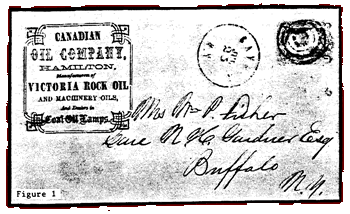 CANADIAN
OIL COMPANY,
HAMILTON,
Manufacturers of
VICTORIA ROCK OIL
AND MACHINERY OILS,
And Dealers in
Coal Oil Lamps.
Mrs Wm P. Fisher
Care N. K. Gardner Esq
Buffalo
N.Y.
Figure 1